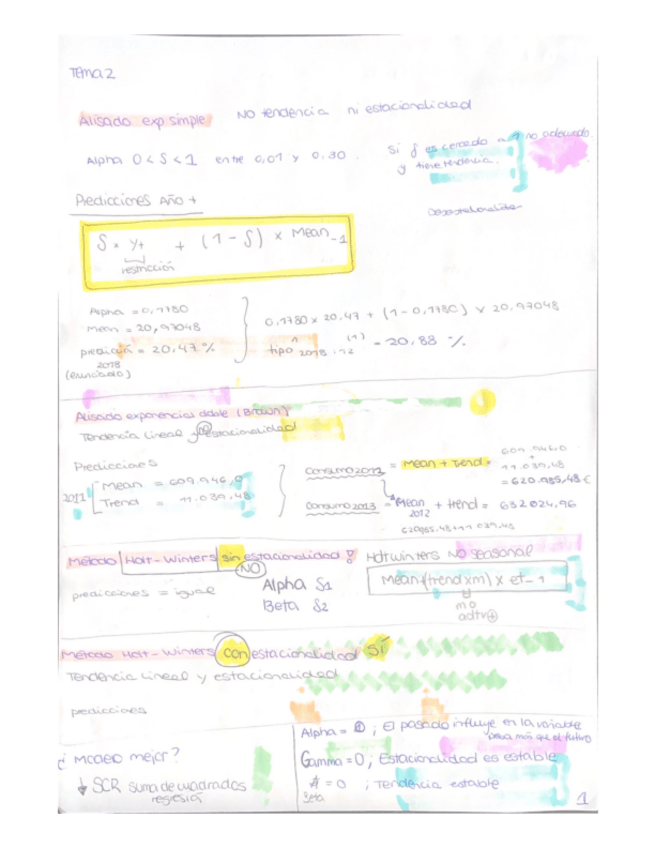 TEMA 2
Alisado exp simple NO tendencia ni estacionalidad
Alpha 0 < S < 1 entre 0,01 y 0.30.
Si δ es cercado a 1 no adecuado
y tiene tendencia.
Predicciones Año +
S x yt + (1 - S) x Mean -1
restricción
Alpha = 0,1180
Mean = 20,97048
predicción = 20,47 %
2018
(enunciado)
0,1180 x 20.47 + (1-0,1180) x 20,97048
tipo 2018 (1) = 20.88 %
Alisado exponencias doble (Brown)
Tendencia Lineal y no estacionalidad
Predicciones
2011 Mean = 609.946,0
Trend = 11.039,48
Consumo 2012 = Mean + Trend =
609.946,0
+
11.039,48
= 620.985,48 €
Consumo 2013 = Mean + trend = 632024,96
2012
620985.48 + 11039.48
Método Holt-Winters sin estacionalidad !
NO
Holtwinters No seasonal
predicciones = igual
Alpha S1
Beta S2
Mean + (trend x m) x et-1
m 0
Método Holt-Winters con estacionalidad SÍ
Tendencia Lineal y estacionalidad
predicciones
¿ Modelo mejor?
↓ SCR suma de cuadrados
regresión
Alpha = 0 ; El pasado influye en la variable
pesa más que el futuro
Gamma = 0 ; Estacionalidad es estable
= 0 ; Tendencia estable
Beta
1